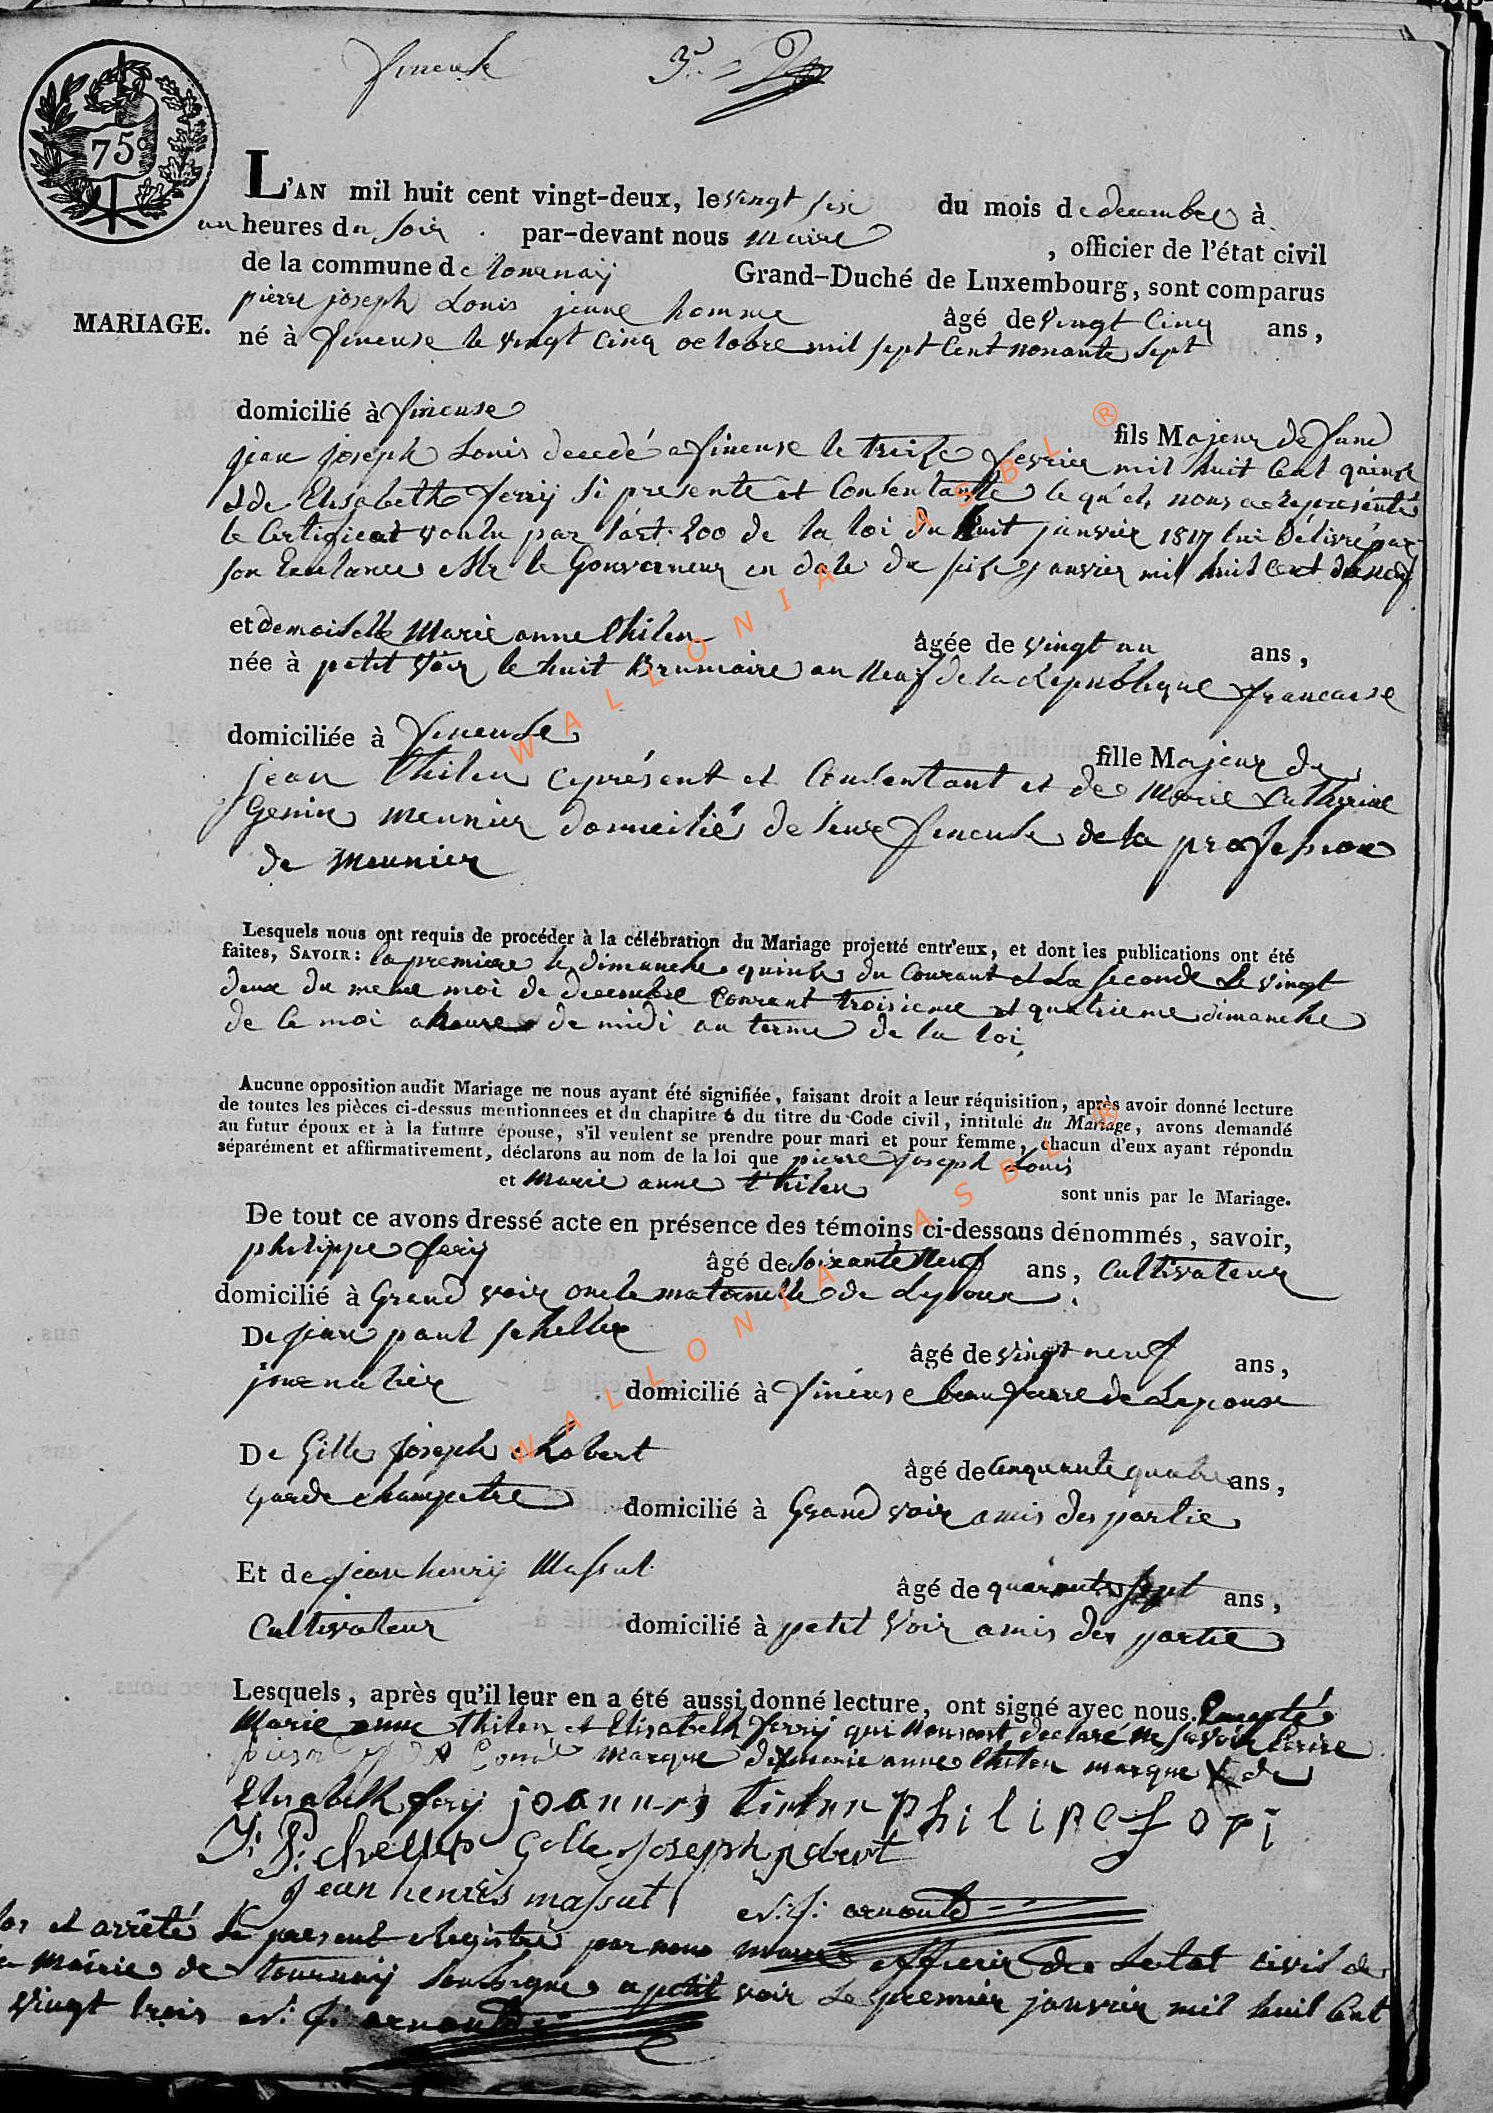 fineuse 3.e
75c
L'AN mil huit cent vingt-deux, le vingt sixe du mois de decembre à
un heures du soir . par-devant nous maire , officier de l'état civil
de la commune de tournaij Grand-Duché de Luxembourg, sont comparus
MARIAGE.
pierre joseph Louis jeune homme âgé de vingt cinq ans,
né à fineuse le vingt cinq octobre mil sept cent nonante sept
domicilié à fineuse
fils Majeur de funs
jean joseph Louis decedé a fineuse le treize fevrier mil huit cent quinse
et de Elisabeth ferrij si presente et Consentante le qu'el nous a représenté
le Certificat voulu par l'art. 200 de la loi du huit janvier 1817 lui délivré par
son Exelance Mr le Gouverneur en date du seize janvier mil huit cent dixneuf
et demoiselle Marie anne thilen âgée de vingt un ans,
née à petit voir le huit Brumaire an neuf de la République francaise
domiciliée à fineuse
fille Majeur de
jean thilen ceprésent et Consentant et de Marie Catherine
Genin meunier domeiliés de leur fineuse de la profession
de meunier
Lesquels nous ont requis de procéder à la célébration du Mariage projetté entr'eux, et dont les publications ont été
faites, SAVOIR: la premiere le dimanche quinse du Courant et La seconde Le vingt
deux du meme moi de decembre Courant troisieme et quatrieme dimanche
de ce moi a heure de midi au terme de la loi
Aucune opposition audit Mariage ne nous ayant été signifiée, faisant droit a leur réquisition, après avoir donné lecture
de toutes les pièces ci-dessus mentionnées et du chapitre 6 du titre du Code civil, intitulé du Mariage, avons demandé
au futur époux et à la future épouse, s'il veulent se prendre pour mari et pour femme, chacun d'eux ayant répondu
séparément et affirmativement, déclarons au nom de la loi que pierre joseph Louis
et marie anne thilen sont unis par le Mariage.
De tout ce avons dressé acte en présence des témoins ci-dessous dénommés, savoir,
philippe ferij âgé de soixante neuf ans, Cultivateur
domicilié à Grand voir oncle maternelle de Lepoux .
De jean paul scheller âgé de vingt neuf ans,
journalier domicilié à fineuse beau frere de Lepouse
De Gille joseph Robert âgé de cinquante quatre ans,
garde champetre domicilié à Grand voir amis des partie
Et de jean henrij Massut âgé de quarante sept ans,
Cultivateur domicilié à petit voir amis des partie
Lesquels, après qu'il leur en a été aussi donné lecture, ont signé avec nous. Excepté
Marie anne thilen et Elisabeth ferrij qui nous ont declaré ne savoir Ecrire
marque de x marie anne thilen marque X de
Elisabeth ferij joannes tielen Philipe feri
J. P. Scheller Gille joseph robert
jean henris massut N: J: arnould
Clos et arrêté le present Registre par nous maire officier de Letat civil de
la Mairie de tournaij soussigne a petit voir Le premier janvier mil huit Cent
vingt trois N: J: arnould
WALLONIA ASBL ®
WALLONIA ASBL ®